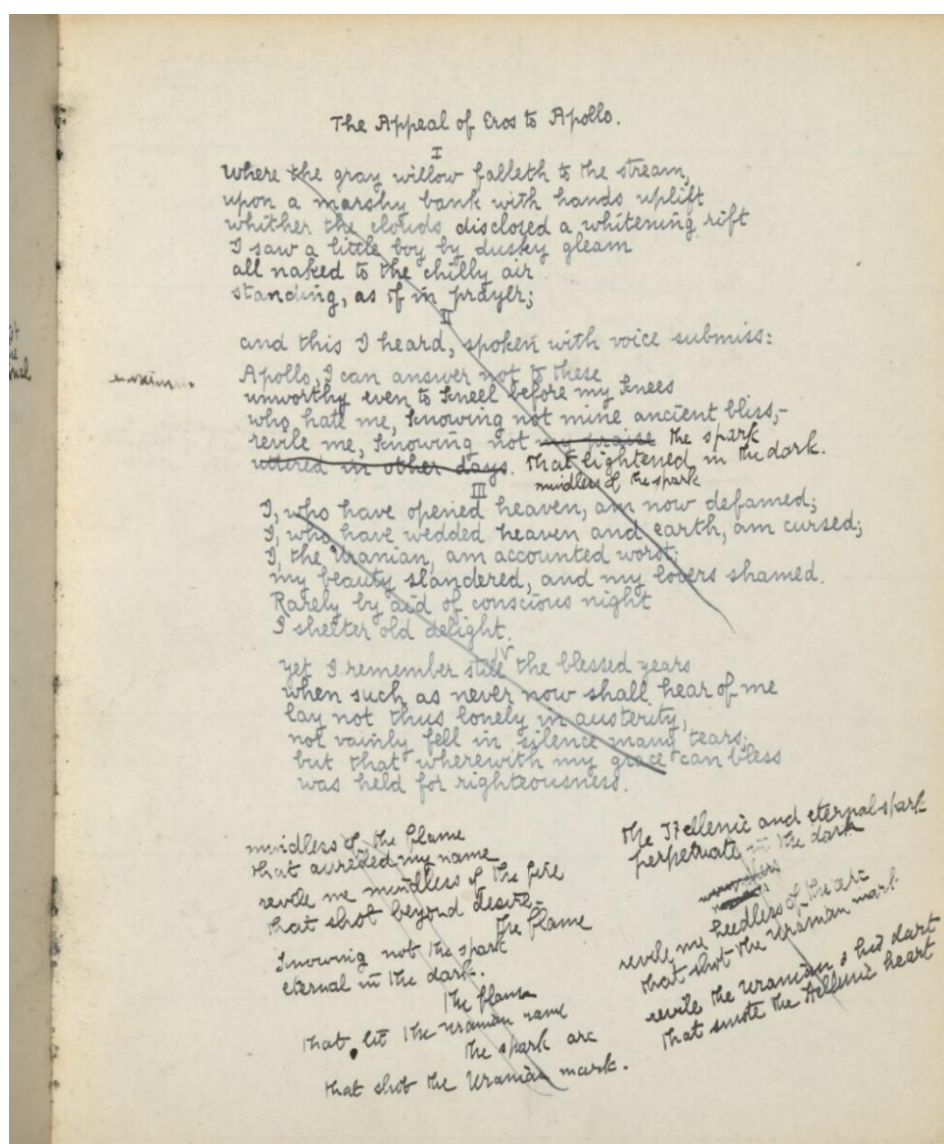 The Appeal of Eros to Apollo.
I
where the gray willow falleth to the stream,
upon a marshy bank with hands uplift
whither the clouds disclosed a whitening rift
I saw a little boy by dusky gleam
all naked to the chilly air
standing, as if in prayer;
II
and this I heard, spoken with voice submiss:
Apollo, I can answer not to these
unworthy even to kneel before my knees
who hate me, knowing not mine ancient bliss,-
revile me, knowing not my praise the spark
uttered in other days. that lightened in the dark.
mindless of the spark
III
I, who have opened heaven, am now defamed;
I, who have wedded heaven and earth, am cursed;
I, the Uranian, am accounted worst;
my beauty slandered, and my lovers shamed.
Rarely by aid of conscious night
I shelter old delight.
IV
yet I remember still the blessed years
when such as never now shall hear of me
lay not thus lonely in austerity,
not vainly fell in silence many tears;
but that wherewith my grace can bless
was held for righteousness.
mindless of the flame
that aureoled my name
revile me mindless of the fire
that shot beyond desire-
the flame
knowing not the spark
eternal in the dark.
the flame
that lit the Uranian name
the spark arc
that shot the Uranian mark.
the Hellenic and eternal spark
perpetuate in the dark
revile me heedless of the arc
that shot the Uranian mark
revile the Uranian & his dart
that smote the Hellenic heart